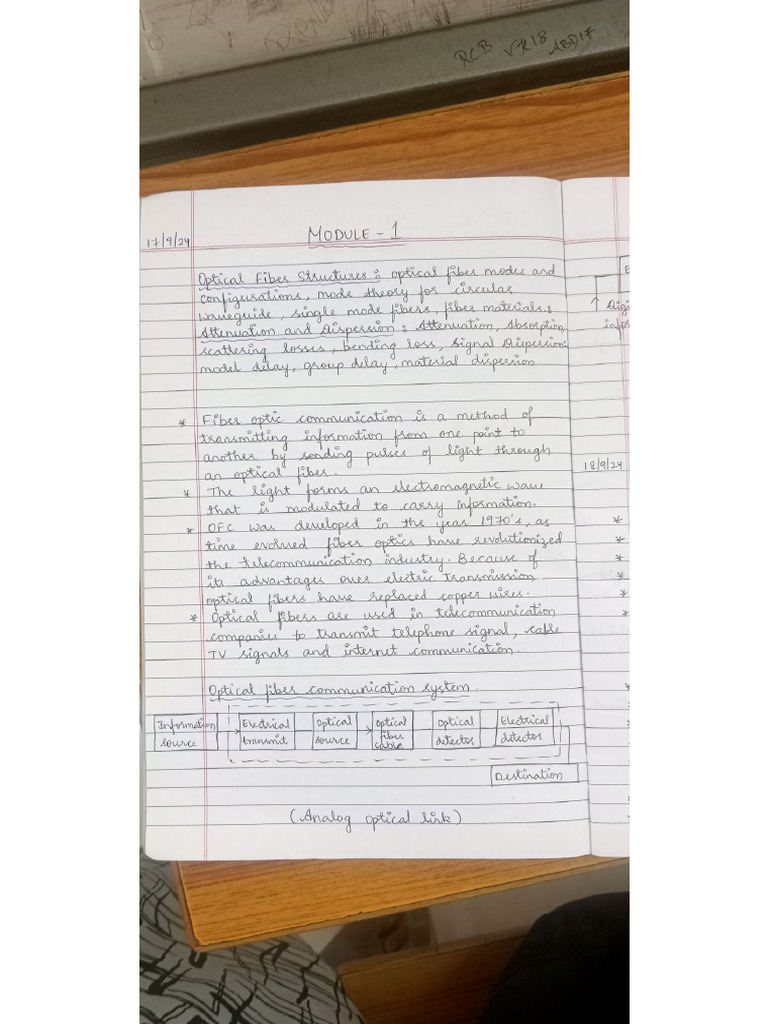 RCB VK18 ABD17
17/9/24
MODULE - 1
Optical Fiber Structures : optical fiber modes and
configurations, mode theory for circular
waveguide, single mode fibers, fiber materials.:
Attenuation and Dispersion : Attenuation, Absorption,
scattering losses, bending loss, Signal Dispersion:
model delay, group delay, material dispersion
* Fiber optic communication is a method of
transmitting information from one point to
another by sending pulses of light through
an optical fiber.
* The light forms an electromagnetic wave
that is modulated to carry information.
* OFC was developed in the year 1970's, as
time evolved fiber optics have revolutionized
the telecommunication industry. Because of
its advantages over electric transmission
optical fibers have replaced copper wires.
* Optical fibers are used in telecommunication
companies to transmit telephone signal, cable
TV signals and internet communication.
Optical fiber communication system.
Information
source
Electrical
transmit
Optical
source
Optical
fiber
cable
Optical
detector
Electrical
detector
Destination
(Analog optical link)
E
18/9/24
*
*
*
*
*